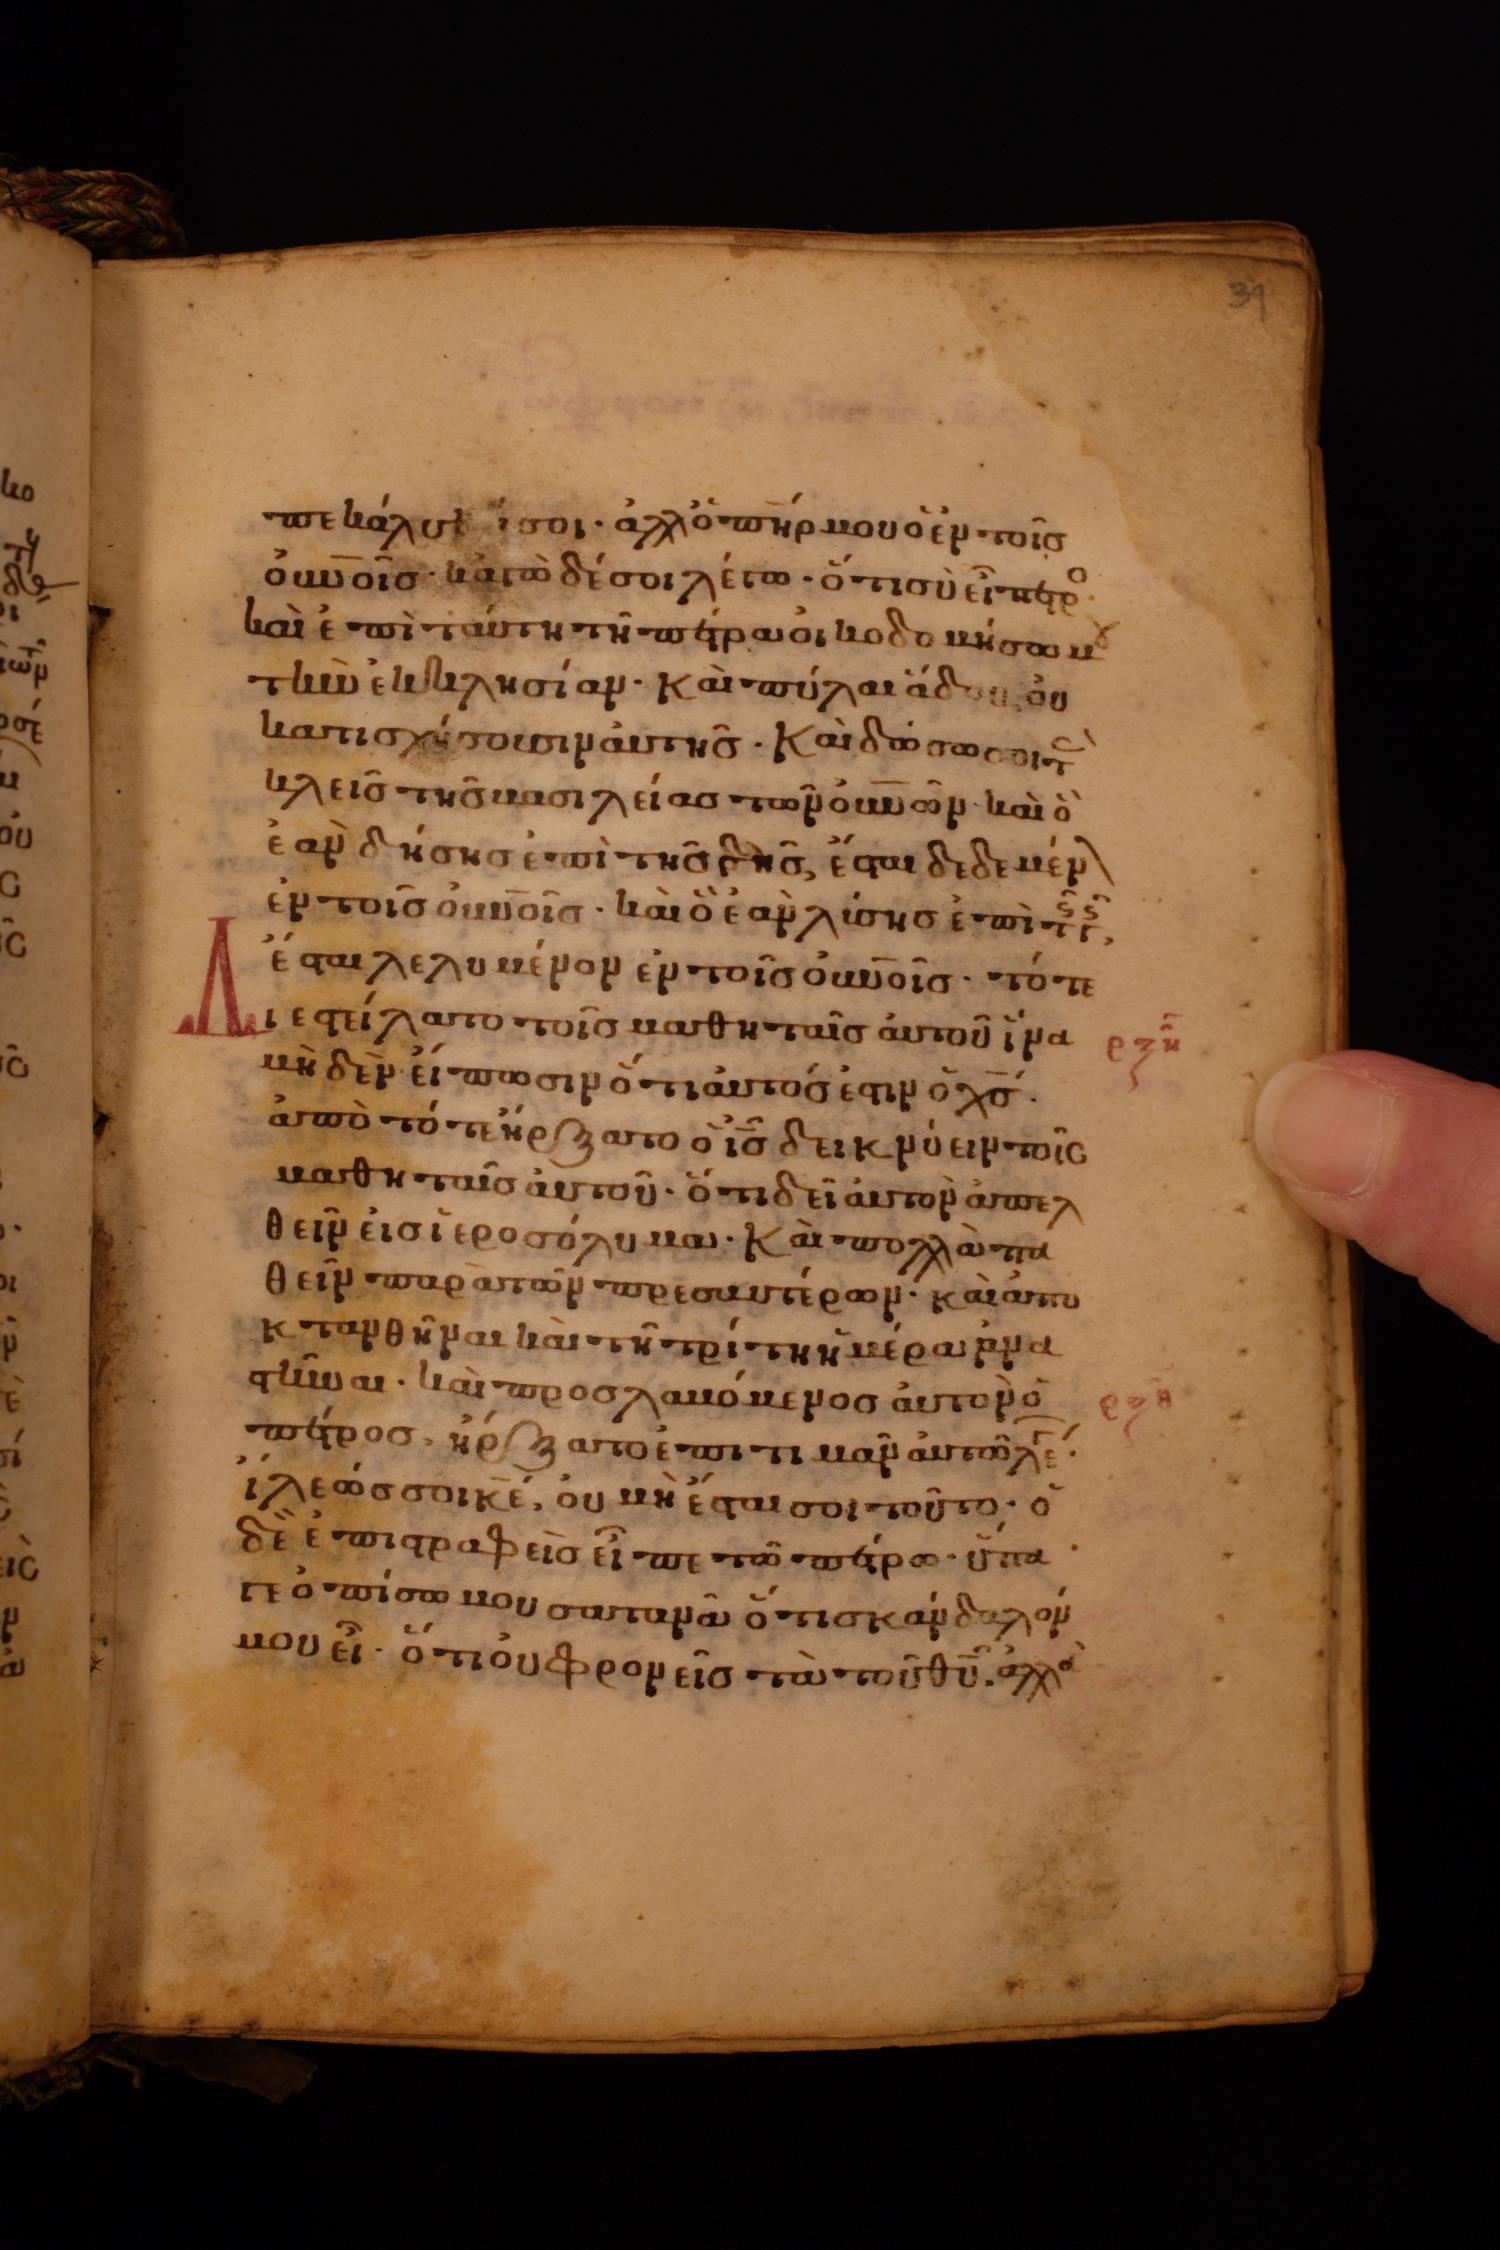 39
πεκάλυ ψέ σοι· ἀλλ' ὁ πη̅ρ μου ὁ ἐν τοῖσ
οὐν̅οῖσ· κἀγὼ δέ σοι λέγω· ὅτι σὺ εἶ πέτρο
καὶ ἐπὶ ταύτη τῆ πέτρα οἰκοδομήσω μου
τὴν ἐκκλησίαν· Καὶ πύλαι ἅδου, οὐ
κατισχύσουσιν αὐτῆσ· Καὶ δώσω σοι τὰσ
κλεῖσ τῆσ βασιλείασ τῶν οὐν̅ῶν· καὶ ὃ
ἐὰν δήσησ ἐπὶ τῆσ γῆσ, ἔσται δεδεμέν
ἐν τοῖσ οὐν̅οῖσ· καὶ ὃ ἐὰν λύσησ ἐπὶ τῆσ γῆσ,
ἔσται λελυμένον ἐν τοῖσ οὐν̅οῖσ· τότε
Διεστείλατο τοῖσ μαθηταῖσ αὐτοῦ ἵνα ρξη
μὴδὲν εἴπωσιν ὅτι αὐτόσ ἐστιν ὁ χσ̅·
ἀπὸ τότε ἤρξατο ὁ ισ̅ δεικνύειν τοῖσ
μαθηταῖσ αὐτοῦ· ὅτι δεῖ αὐτὸν ἀπελ
θεῖν εἰσ ἱεροσόλυμα· Καὶ πολλὰ πα
θεῖν παρὰ τῶν πρεσβυτέρων· καὶ ἀπο
κτανθῆναι καὶ τῆ τρίτη ἡμέρα ἀνα
στῆναι· καὶ προσλαβόμενοσ αὐτὸν ὁ ρξθ
πέτροσ, ἤρξατο ἐπιτιμᾶν αὐτῶ λέγ·
ἵλεώσ σοι κε̅, οὐ μὴ ἔσται σοι τοῦτο· ὁ
δὲ ἐπιστραφεὶσ εἶπε τῶ πέτρω· ὕπα
γε ὀπίσω μου σατανᾶ ὅτι σκάνδαλόν
μου εἶ· ὅτι οὐ φρονεῖσ τὰ τοῦ θυ̅· ἀλλὰ